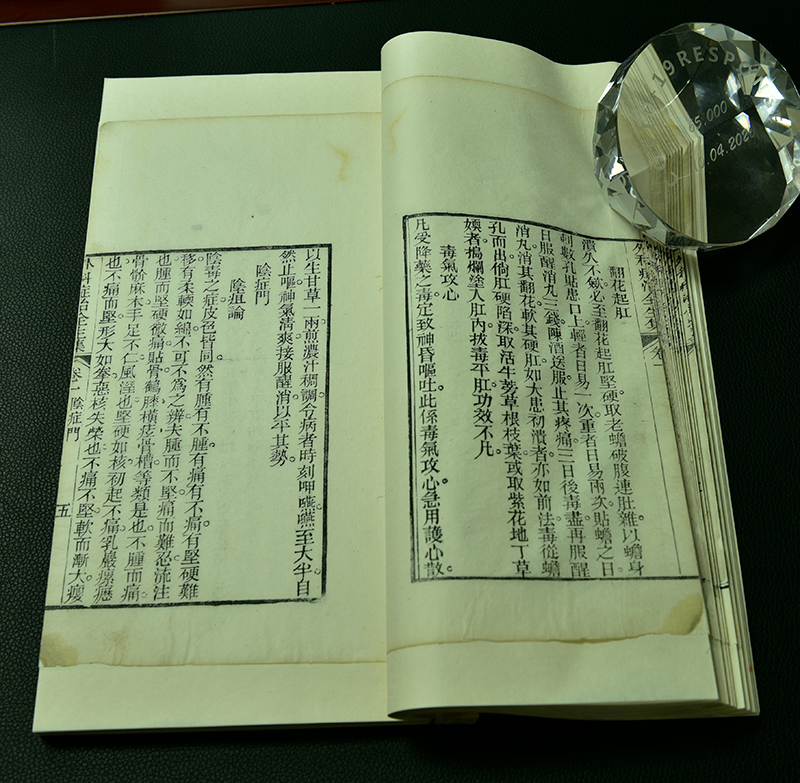 外科症治全生集 卷一
翻花起肛
潰久不斂必至翻花起肛堅硬取老蟾破腹連肚雜以蟾身
刺數孔貼患口上輕者日易一次重者日易兩次貼蟾之日
日服醒消丸三錢陳酒送服止其疼痛三日後毒盡再服醒
消丸消其翻花軟其硬肛如大患初潰者亦如前法毒從蟾
孔而出倘肛硬陷深取活牛蒡草根枝葉或取紫花地丁草
嫩者搗爛塗入肛內拔毒平肛功效不凡
毒氣攻心
凡受降藥之毒定致神昏嘔吐此係毒氣攻心急用護心散
以生甘草一兩煎濃汁稠調令病者時刻呷嚥嚥至大半自
然止嘔神氣清爽接服醒消以平其勢
陰症門
陰疽論
陰毒之症皮色皆同然有腫有不腫有痛有不痛有堅硬難
移有柔軟如綿不可不為之辨夫腫而不堅痛而難忍流注
也腫而堅硬微痛貼骨鶴膝橫痃骨槽等類是也不腫而痛
骨骱麻木手足不仁風溼也堅硬如核初起不痛乳巖瘰癧
也不痛而堅形大如拳惡核失榮也不痛不堅軟而漸大癭
外科症治全生集 卷一 陰症門 五